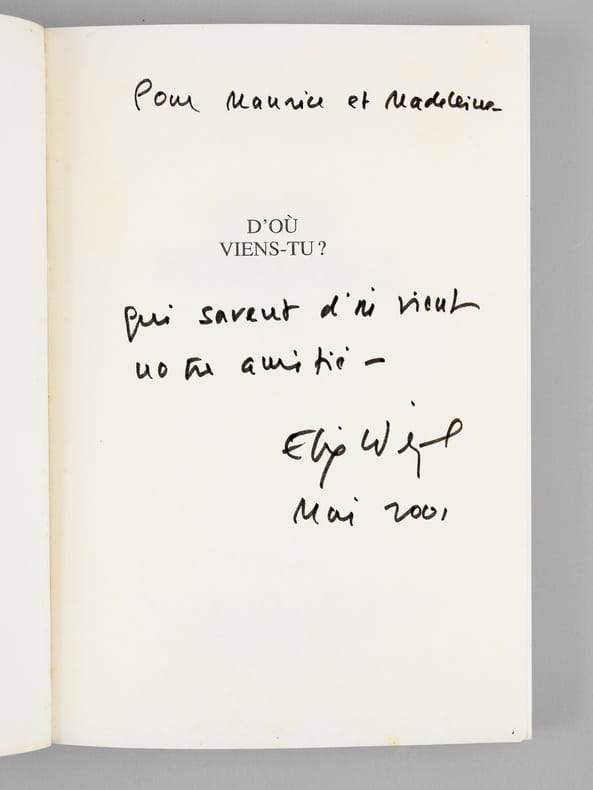 Pour Maurice et Madeleine
D'OÙ
VIENS-TU ?
qui savent d'où vient
notre amitié —
Elie Wiesel
Mai 2001